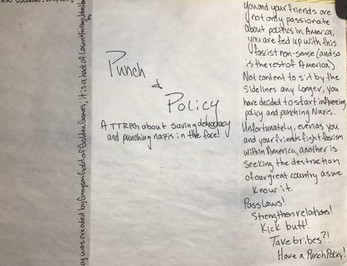 Punch
&
Policy
A TTRPG about saving democracy
and punching nazis in the face!
You and your friends are
not only passionate
about politics in America,
you are fed up with this
fascist non-sense (and so
is the rest of America)
Not content to sit by the
sidelines any longer, you
have decided to start influencing
policy and punching Nazis.
Unfortunately, even as you
and your friends fight fascism
within America, another is
seeking the destruction
of our great country as we
know it.
Pass laws!
Strengthen relations!
Kick butt!
Take bribes?!
Have a Punch Policy!
was created by Grayson field on Golden Games; it is a hack of Lasers